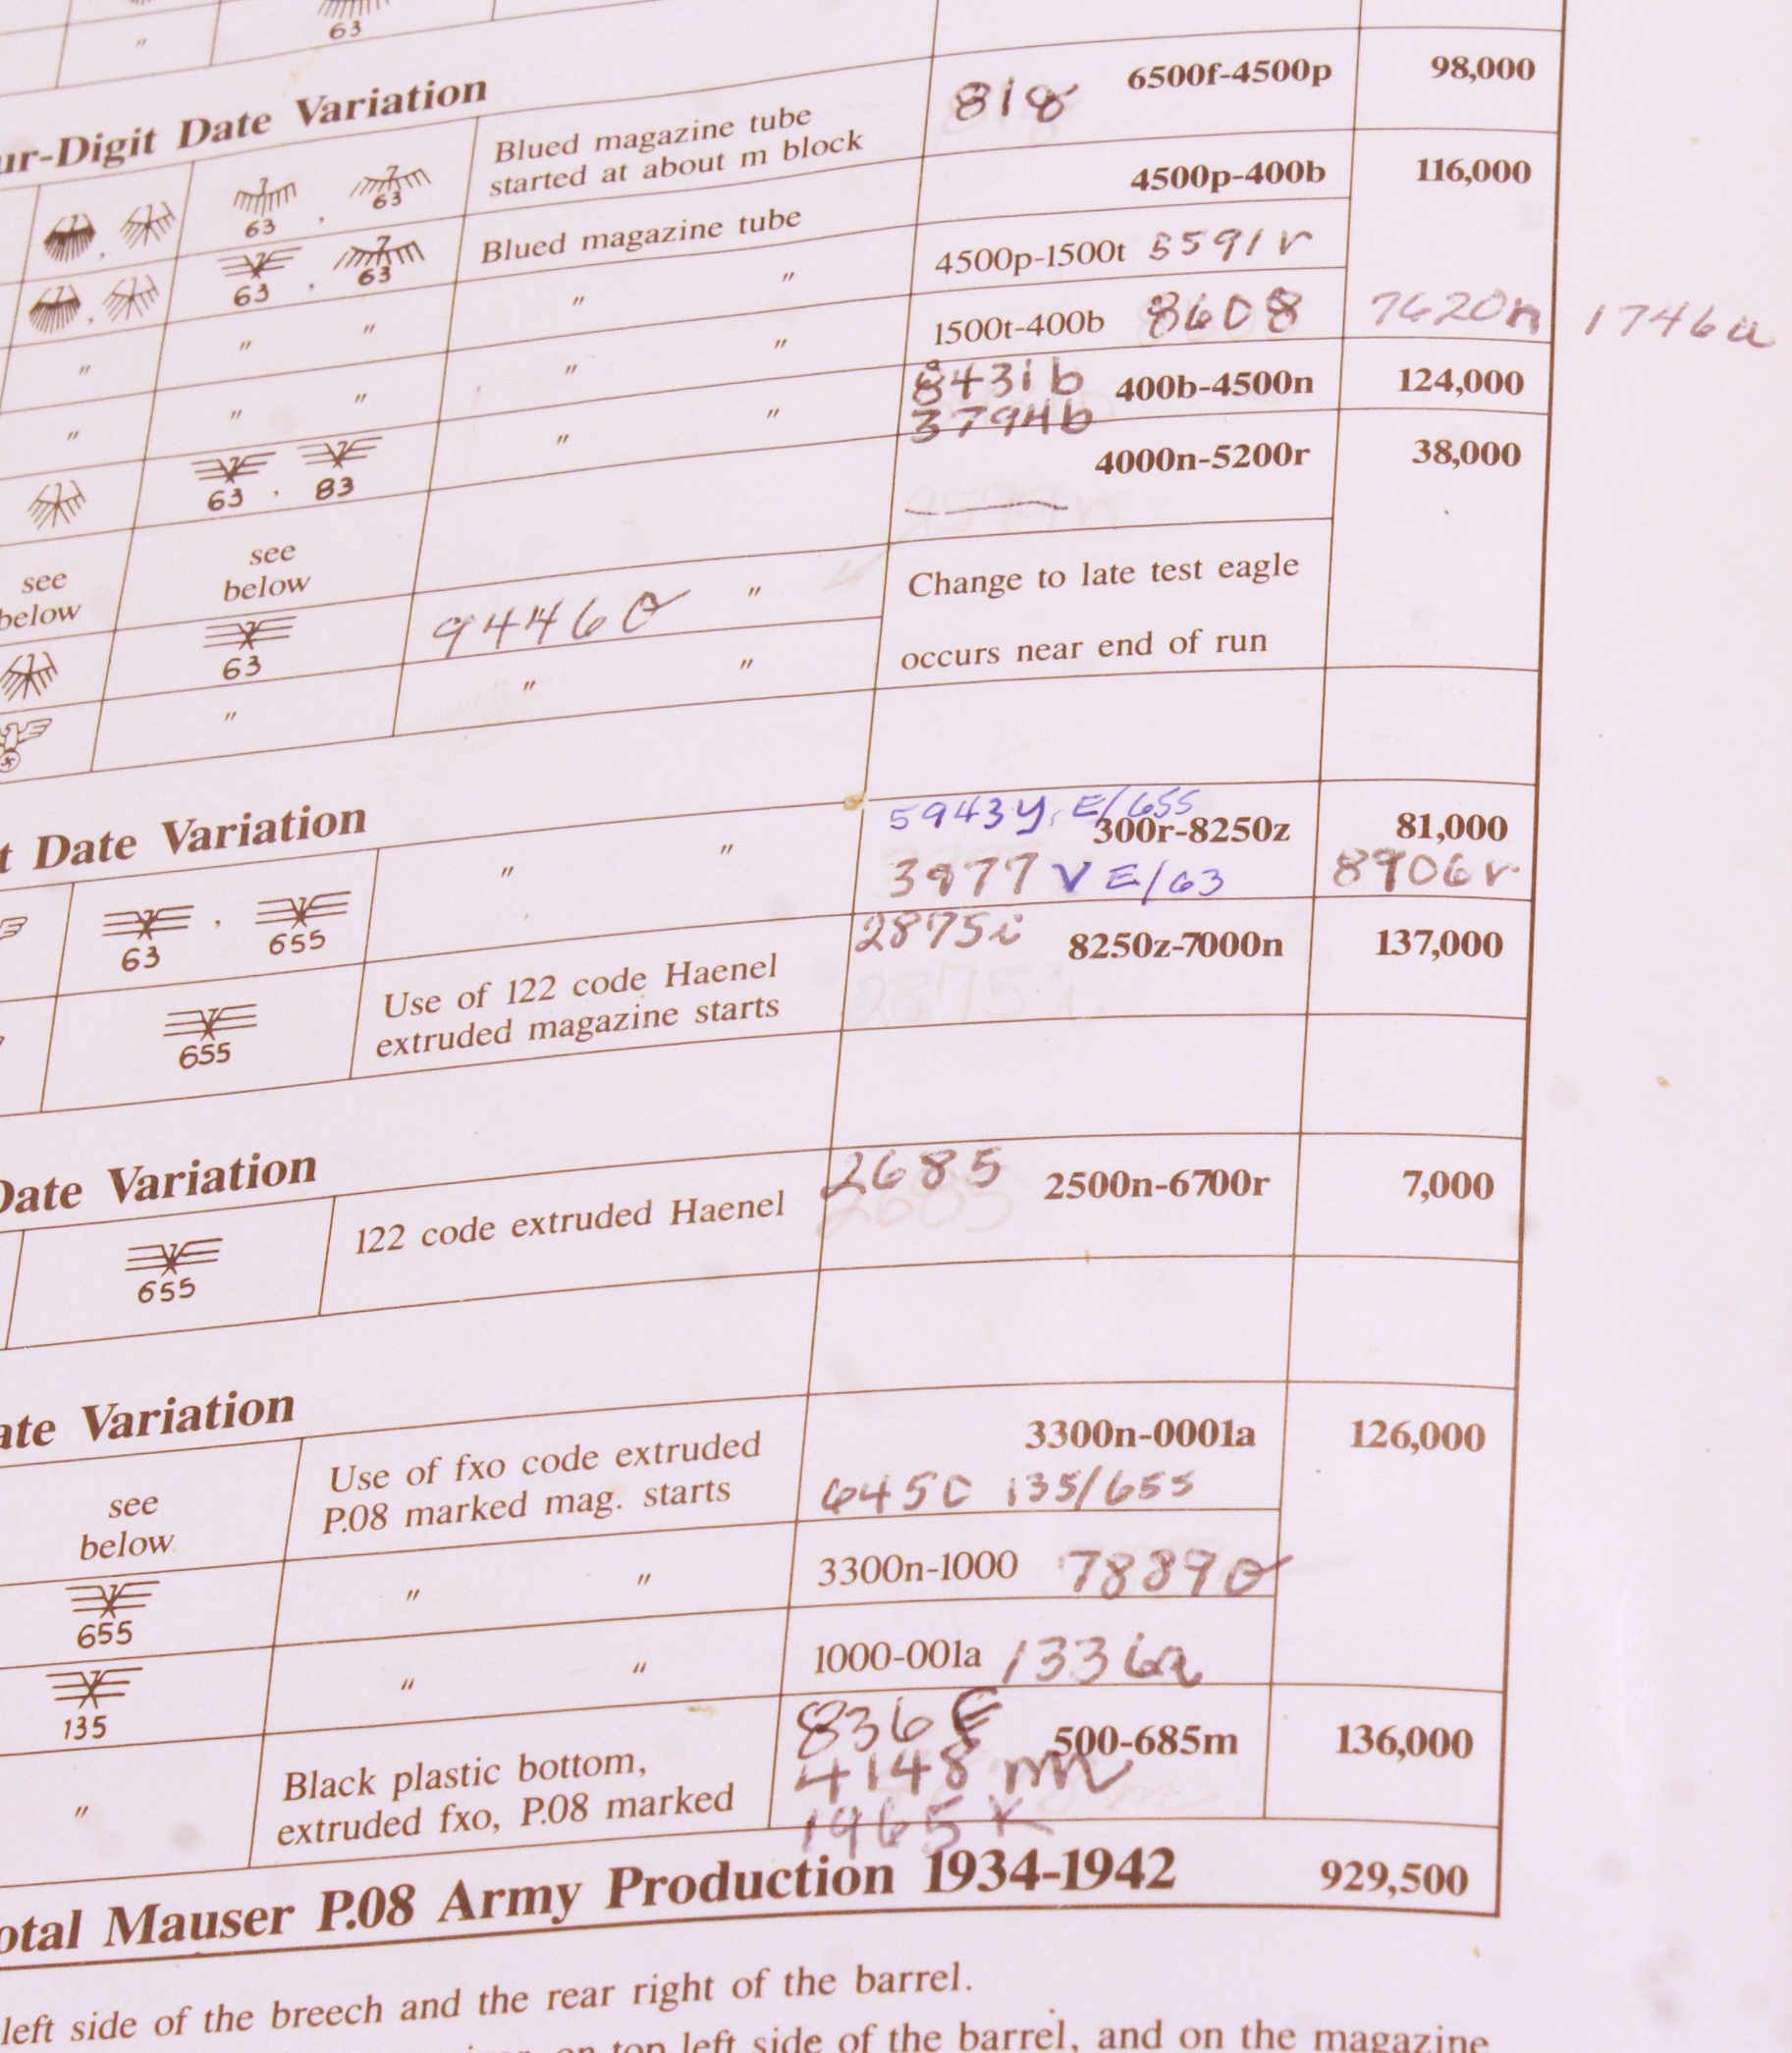 ″ 63
ur-Digit Date Variation
63 , 63 Blued magazine tube started at about m block 818 6500f-4500p 98,000
63 , 63 Blued magazine tube 4500p-400b 116,000
″ ″ ″ ″ ″ 4500p-1500t 5591r
″ ″ ″ ″ ″ 1500t-400b 8608 7620n 1746a
63 , 83 ″ ″ 8431b 400b-4500n 124,000
3794b
see below see below 4000n-5200r 38,000
63 9446o ″ Change to late test eagle
″ ″ ″ occurs near end of run
t Date Variation
5943y, E/655
63 , 655 ″ ″ 300r-8250z 81,000
3977 V E/63 8906r
655 Use of 122 code Haenel extruded magazine starts 2875i 8250z-7000n 137,000
2875i
Date Variation
655 122 code extruded Haenel 2685 2500n-6700r 7,000
2685
ate Variation
see below Use of fxo code extruded P.08 marked mag. starts 3300n-0001a 126,000
6450 135/655
655 ″ ″ 3300n-1000 7889o
135 ″ ″ 1000-001a 1336a
″ Black plastic bottom, extruded fxo, P.08 marked 836f 500-685m 136,000
4148m
1965k
otal Mauser P.08 Army Production 1934-1942 929,500
left side of the breech and the rear right of the barrel.
on top left side of the barrel, and on the magazine